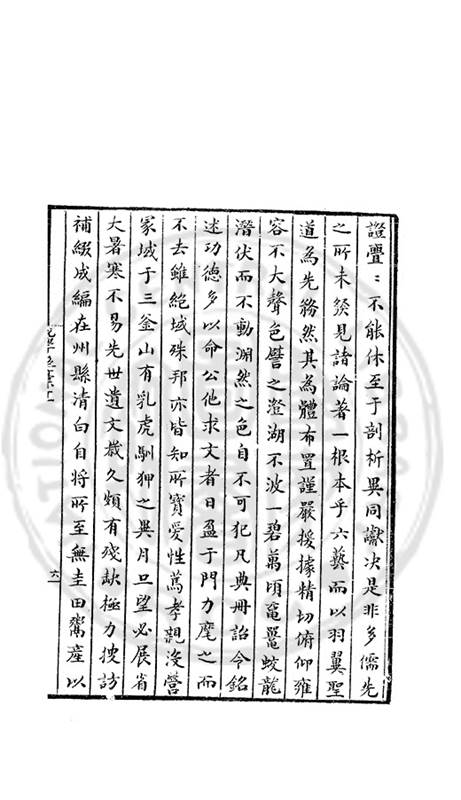 證亹〻不能休至于剖析異同讞决是非多儒先
之所未發見諸論著一根本乎六藝而以羽翼聖
道為先務然其為體布置謹嚴援據精切俯仰雍
容不大聲色譬之澄湖不波一碧萬頃黿鼉蛟龍
潛伏而不動淵然之色自不可犯凡典冊詔令銘
述功德多以命公他求文者日盈于門力麾之而
不去雖絕域殊邦亦皆知所寶愛性篤孝親沒營
冢域于三釜山有乳虎馴狎之異月旦望必展省
大暑寒不易先世遺文歲久頗有殘缺極力搜訪
補綴成編在州縣清白自將所至無圭田鬻產以
六